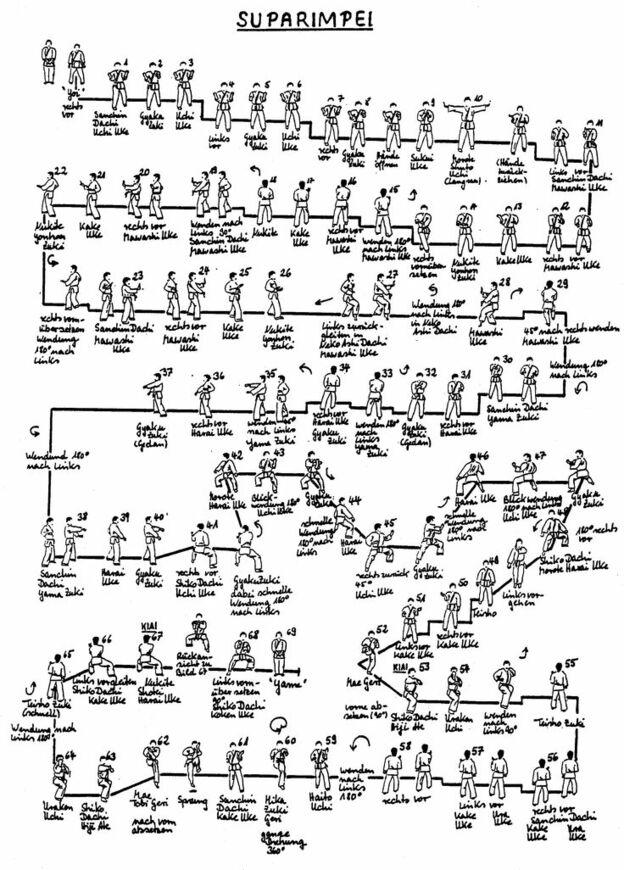 SUPARIMPEI
1 2 3
"Yoi"
rechts
vor
Sanchin
Dachi
Uchi Uke
Gyaku
Zuki
Uchi
Uke
4 5 6
Links
vor
Gyaku
Zuki
Uchi
Uke
7 8 9 10
rechts
vor
Gyaku
Zuki
Hände
öffnen
Sukui
Uke
Morote
Shuto
Uchi
(Langsam)
(Hände
zurück-
ziehen)
11
Links vor
Sanchin Dachi
Mawashi Uke
22 21 20 19 18 17 16 15
Kukite
Yonhon
Zuki
Kake
Uke
rechts vor
Mawashi Uke
Wenden nach
Links 90°
Sanchin Dachi
Mawashi Uke
Kukite
Kake
Uke
rechts vor
Mawashi
Uke
wenden 180°
nach Links
Mawashi Uke
14 13 12
rechts
vornüber
setzen
Kukite
Yonhon
Zuki
Kake Uke
rechts vor
Mawashi Uke
23 24 25 26 27 28 29
rechts vorn-
übersetzen
Wendung
180° nach
Links
Sanchin Dachi
Mawashi
Uke
rechts vor
Mawashi
Uke
Kake
Uke
Kukite
Yonhon
Zuki
Links zurück-
gleiten in
Neko Ashi Dachi
Mawashi Uke
Wendung 180°
nach Links
in Neko
Ashi Dachi
Mawashi
Uke
45° nach rechts wenden
Mawashi Uke
37 36 35 34 33 32 31 30
Gyaku
Zuki
(Gedan)
rechts vor
Harai Uke
wenden 45°
nach Links
Yama Zuki
rechts vor
Harai Uke
Gyaku
Zuki
wenden 180°
nach
Links
Yama
Zuki
Gyaku
Zuki
(Gedan)
rechts vor
Harai Uke
Sanchin Dachi
Yama Zuki
Wendung 180°
nach Links
Wendung 180°
nach Links
42 43
Morote
Harai Uke
Blick-
wendung 180°
Uchi Uke
Gyaku
Zuki
46 47
Harai Uke
Blickwendung
180° nach Links
Uchi Uke
Gyaku
Zuki
38 39 40 41
Sanchin
Dachi
Yama Zuki
Harai
Uke
Gyaku
Zuki
rechts vor
Shiko Dachi
Uchi Uke
Gyaku Zuki
dabei schnelle
Wendung 180°
nach Links
schnelle
Wendung
180° nach
Links
44 45
Harai
Uke
rechts zurück
45°
Uchi Uke
Gyaku
Zuki
schnelle
Wendung
180° nach
Links
48
180° rechts
vor
Shiko Dachi
Morote Harai Uke
Links vor-
gehen
49
Teisho
50
rechts vor
Kake Uke
51
Links vor
Kake Uke
52
Mae Geri
65 66 67 68 69
KIAI
Teisho Zuki
(schnell)
Links vorgleiten
Shiko Dachi
Kake Uke
Kukite
Shotei
Harai Uke
Rückan-
sicht zu
Bild 67
Links vorn-
über setzen
90°
Shiko Dachi
Koken Uke
"Yame"
KIAI
53 54 55
vorne ab-
setzen (90°)
Shiko Dachi
Hiji Ate
Uraken
Uchi
wenden
nach
Links 90°
Teisho Zuki
Wendung nach
Links 180°
64 63 62 61 60 59 58 57 56
Uraken
Uchi
Shiko
Dachi
Hiji Ate
Mae
Tobi Geri
nach vorn
absetzen
Sprung
Sanchin
Dachi
Kake Uke
Mika
Zuki
Geri
ganze
Drehung
360°
Haito
Uchi
wenden
nach
Links
180°
rechts vor
Links vor
Kake
Uke
Ura
Uke
rechts vor
Sanchin Dachi
Kake
Uke
Ura
Uke